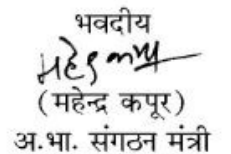 भवदीय
महेन्द्र कपूर
(महेन्द्र कपूर)
अ.भा. संगठन मंत्री